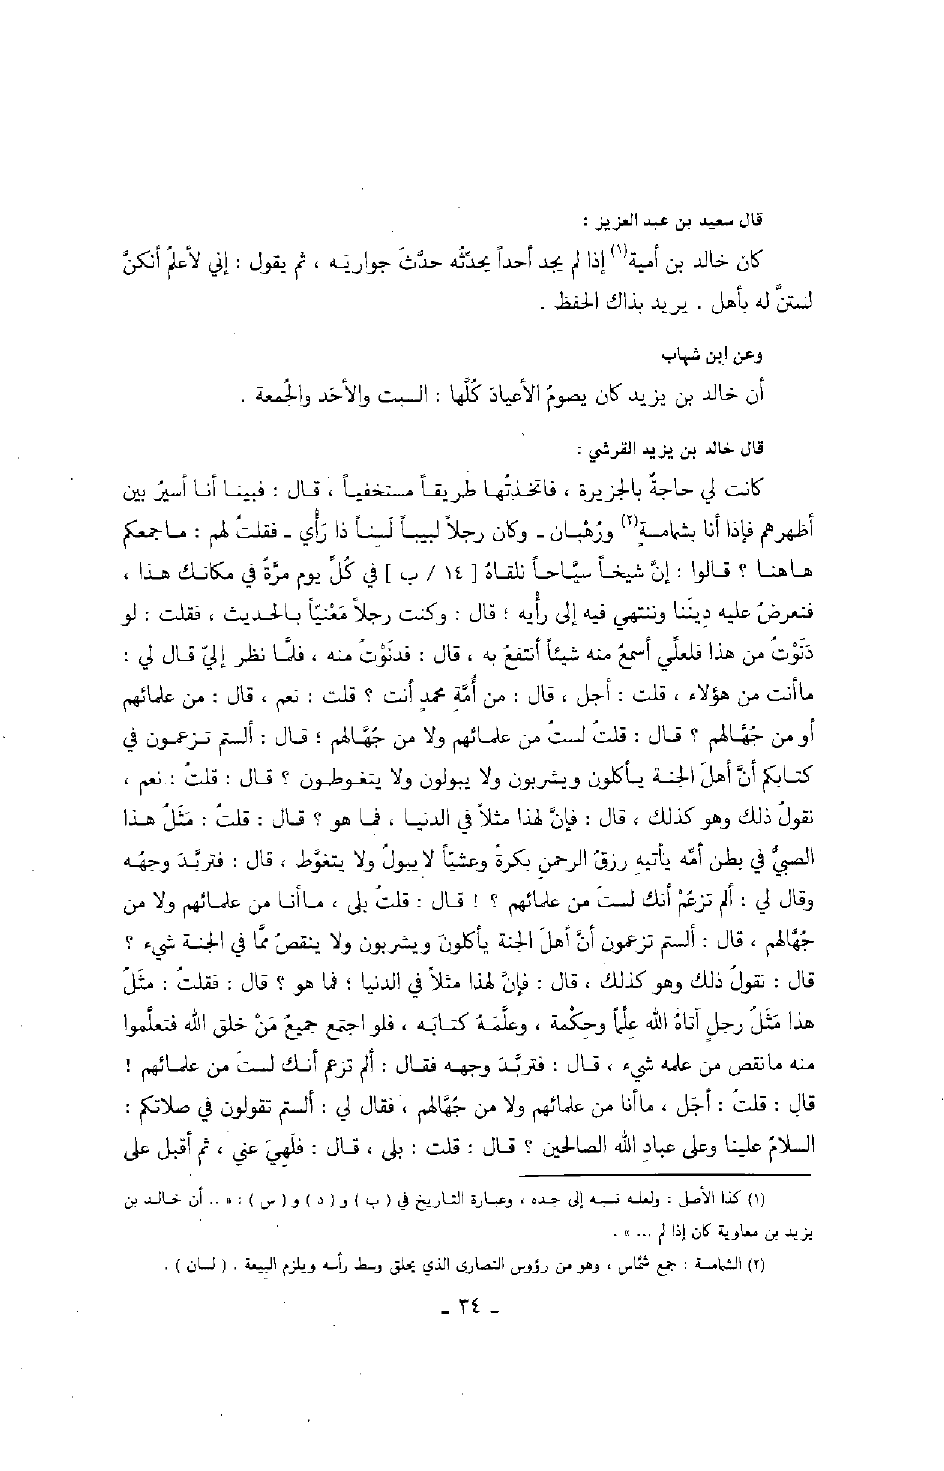 قال سعيد بن عبد العزيز :
كان خالد بن أمية(١) إذا لم يجد أحداً يحدّثُه حدَّثَ جواريَه ، ثم يقول : إني لأعلمُ أنكنَّ
لستنَّ له بأهل . يريد بذاك الحفظ .
وعن ابن شهاب
أن خالد بن يزيد كان يصومُ الأعيادَ كُلَّها : السبت والأحَد والجُمعة .
قال خالد بن يزيد القرشي :
كانت لي حاجةٌ بالجزيرة ، فاتخذتُها طريقاً مستخفياً ، قال : فبينا أنا أسيرُ بين
أظهرهم فإذا أنا بشمامسة(٢) ورُهْبان ـ وكان رجلاً لبيباً لسِناً ذا رَأْي ـ فقلتُ لهم : ماجمعكم
هاهنا ؟ قالوا : إنَّ شيخاً سيَّاحاً نلقاهُ [ ١٤ / ب ] في كُلِّ يوم مرَّةً في مكانك هذا ،
فنعرضُ عليه دِينَنا وننتهي فيه إلى رأْيه ؛ قال : وكنت رجلاً مَعْنيّاً بالحديث ، فقلت : لو
دَنَوْتُ من هذا فلعلّي أسمعُ منه شيئاً أنتفعُ به ، قال : فدنَوْتُ منه ، فلمَّا نظر إليّ قال لي :
ماأنت من هؤلاء ، قلت : أجل ، قال : من أُمَّةِ محمدٍ أنت ؟ قلت : نعم ، قال : من علمائهم
أو من جُهَّالهم ؟ قال : قلتُ لستُ من علمائهم ولا من جُهَّالهم ؛ قال : ألستم تزعمون في
كتابكم أنَّ أهلَ الجنة يأكلون ويشربون ولا يبولون ولا يتغوطون ؟ قال : قلتُ : نعم ،
نقولُ ذلك وهو كذلك ، قال : فإنَّ لهذا مثلاً في الدنيا ، فما هو ؟ قال : قلتُ : مَثَلُ هذا
الصبيُّ في بطن أمّه يأتيهِ رزقُ الرحمنِ بكرةً وعشيّاً لايبولُ ولا يتغوَّط ، قال : فتربَّدَ وجهُه
وقال لي : ألم تزعُمْ أنك لستَ من علمائهم ؟ ! قال : قلتُ بلى ، ماأنا من علمائهم ولا من
جُهَّالهم ، قال : ألستم تزعمون أنَّ أهلَ الجنة يأكلونَ ويشربون ولا ينقصُ ممَّا في الجنة شيء ؟
قال : نقولُ ذلك وهو كذلك ، قال : فإنَّ لهذا مثلاً في الدنيا ؛ فما هو ؟ قال : فقلتُ : مثَلُ
هذا مَثَلُ رجلٍ آتاهُ الله علماً وحكمة ، وعلَّمَهُ كتابَه ، فلو اجتمع جميعُ مَنْ خلق الله فتعلَّموا
منه مانقص من علمه شيء ، قال : فتربَّدَ وجهه فقال : ألم تزعم أنك لستَ من علمائهم !
قال : قلتُ : أجَل ، ماأنا من علمائهم ولا من جُهَّالهم ، فقال لي : ألستم تقولون في صلاتكم :
السلامُ علينا وعلى عبادِ الله الصالحين ؟ قال : قلت : بلى ، قال : فلَهيَ عني ، ثم أقبل على
(١) كذا الأصل : ولعله نسبه إلى جده ، وعبارة التاريخ في ( ب ) و ( د ) و ( س ) : « .. أن خالد بن
يزيد بن معاوية كان إذا لم ... » .
(٢) الشمامسة : جمع شمّاس ، وهو من رؤوس النصارى الذي يحلق وسط رأسه ويلزم البيعة . ( لسان ) .
ـ ٣٤ ـ